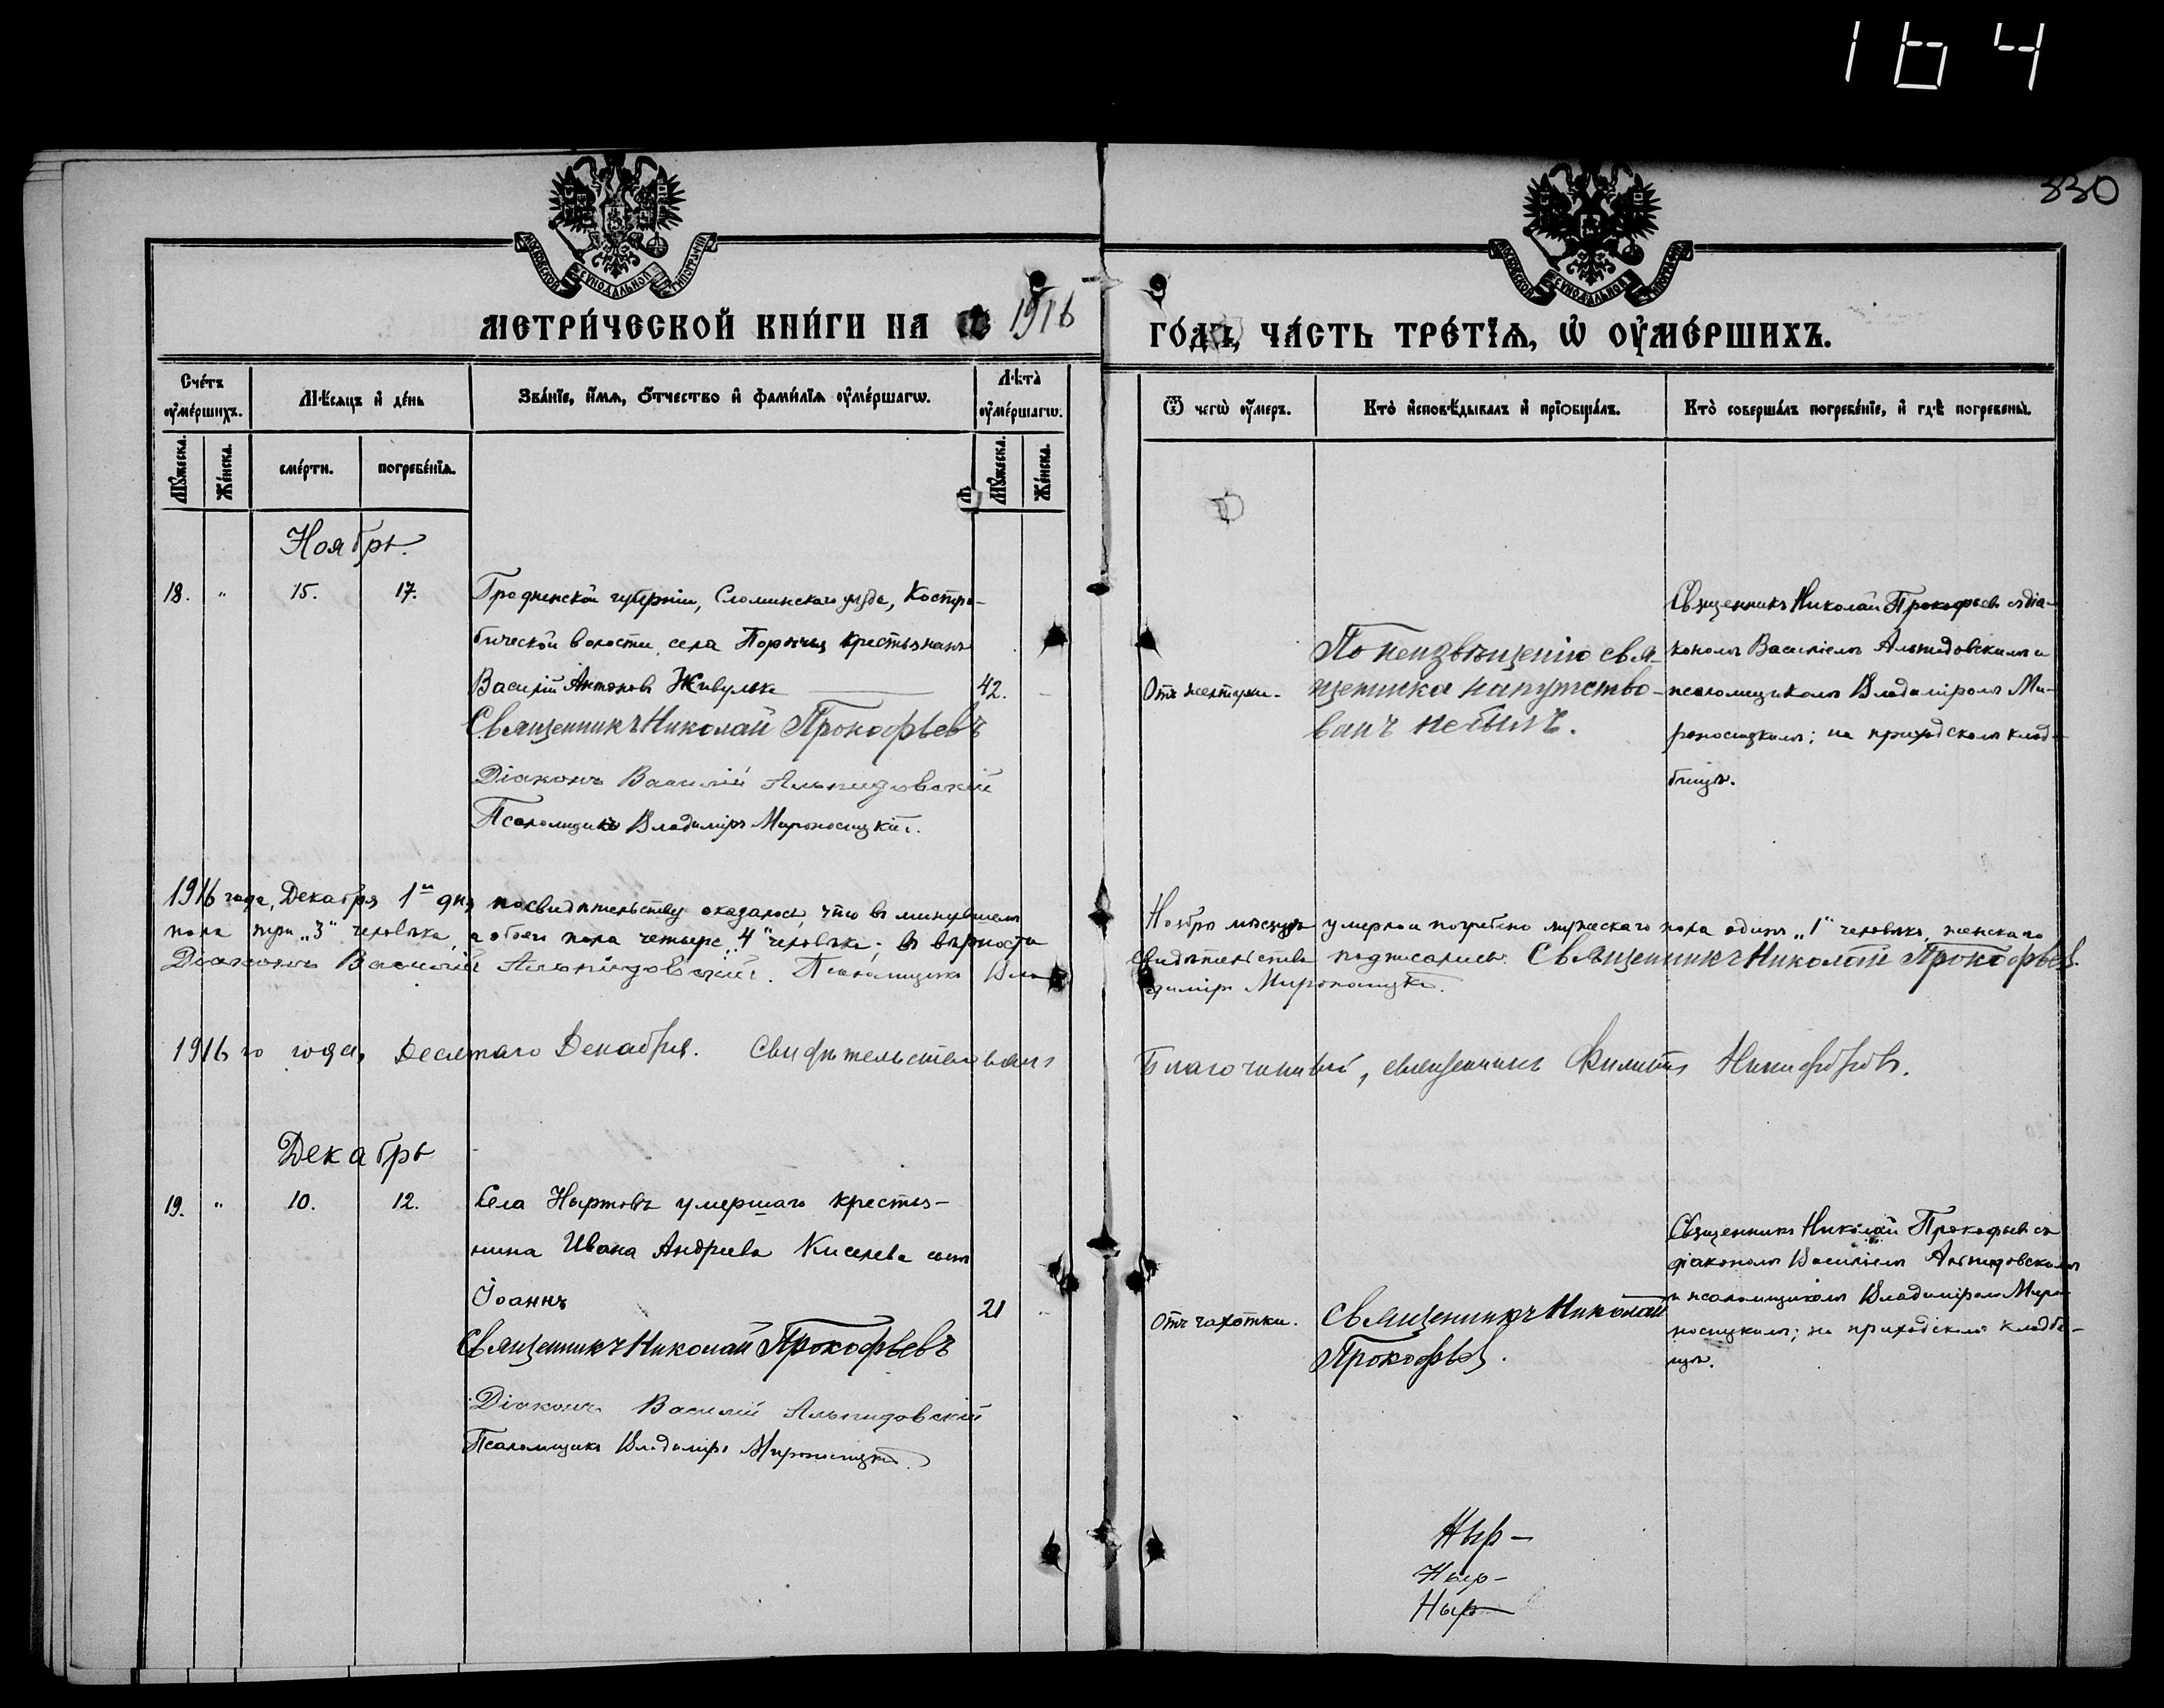 164
330
МОСКОВСКОЙ СУНОДАЛЬНОЙ ТИПОГРАФІИ
МОСКОВСКОЙ СУНОДАЛЬНОЙ ТИПОГРАФІИ
МЕТРИ́ЧЕСКОЙ КНИ́ГИ НА 1916
ГО́ДЪ, ЧА́СТЬ ТРЕ́ТЇѦ, Ѡ҆ ОУ҆МЕ́РШИХЪ.
Сче́тъ оу҆ме́ршихъ.
Мꙋ́жеска.
Же́нска.
Мѣ́сѧцъ и҆ де́нь
сме́рти.
погребе́нїѧ.
Зва́нїе, и҆́мѧ, ѻ҆́тчество и҆ фами́лїѧ оу҆ме́ршагѡ.
Лѣ́та оу҆ме́ршагѡ.
Мꙋ́жеска.
Же́нска.
Ѿ чегѡ̀ оу҆́меръ.
Кто̀ и҆сповѣ́дывалъ и҆ прїѡбща́лъ.
Кто̀ соверша́лъ погребе́нїе, и҆ гдѣ̀ погребены̀.
Ноябрь.
18. " 15. 17.
Гродненской губерніи, Слонимскаго уѣзда, Костро-
бической волости, села Порѣчья крестьянинъ
Василій Антоновъ Живулько 42. –
Священникъ Николай Прокофьевъ
Діаконъ Василій Альпидовскій
Псаломщикъ Владиміръ Мироносицкій.
Отъ желтухи.
По неизвѣщенію свя-
щенника напутство-
ванъ не былъ.
Священникъ Николай Прокофьевъ съ діа-
кономъ Василіемъ Альпидовскимъ и
псаломщикомъ Владиміромъ Ми-
роносицкимъ; на приходскомъ клад-
бищѣ.
1916 года, Декабря 1го дня по свидѣтельству оказалось, что въ минувшемъ Ноябрѣ мѣсяцѣ умерло и погребено мужескаго пола одинъ „1" человѣкъ, женскаго
пола три „3" человѣка, а обоего пола четыре „4" человѣка; въ вѣрности свидѣтельства подписались: Священникъ Николай Прокофьевъ.
Діаконъ Василій Альпидовскій. Псаломщикъ Владиміръ Мироносицкій.
1916го года, Десятаго Декабря. Свидѣтельствовалъ Благочинный, священникъ Филиппъ Никифоровъ.
Декабрь
19. " 10. 12.
Села Ныртовъ умершаго крестья-
нина Ивана Андреева Киселева сынъ
Іоаннъ 21 "
Священникъ Николай Прокофьевъ
Діаконъ Василій Альпидовскій
Псаломщикъ Владиміръ Мироносицкій.
Отъ чахотки.
Священникъ Николай
Прокофьевъ.
Священникъ Николай Прокофьевъ съ
діакономъ Василіемъ Альпидовскимъ
и псаломщикомъ Владиміромъ Миро-
носицкимъ; на приходскомъ кладби-
щѣ.
Ныр-
Ныр-
Ныр-